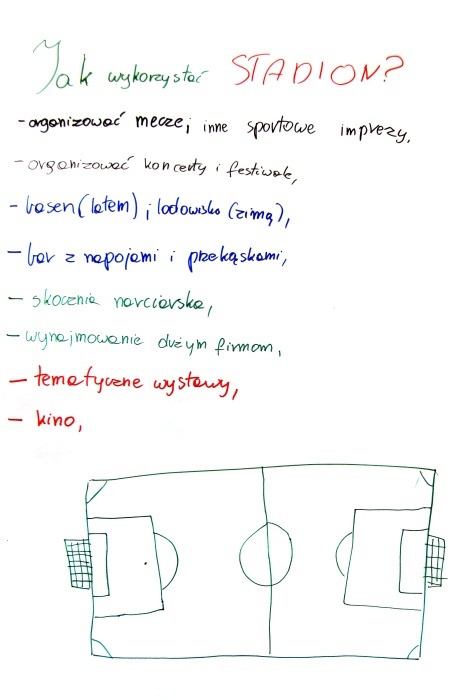 Jak wykorzystać STADION?
- organizować mecze i inne sportowe imprezy,
- organizować koncerty i festiwale,
- basen (latem) i lodowisko (zimą),
- bar z napojami i przekąskami,
- skocznia narciarska,
- wynajmowanie dużym firmom,
- tematyczne wystawy,
- kino,